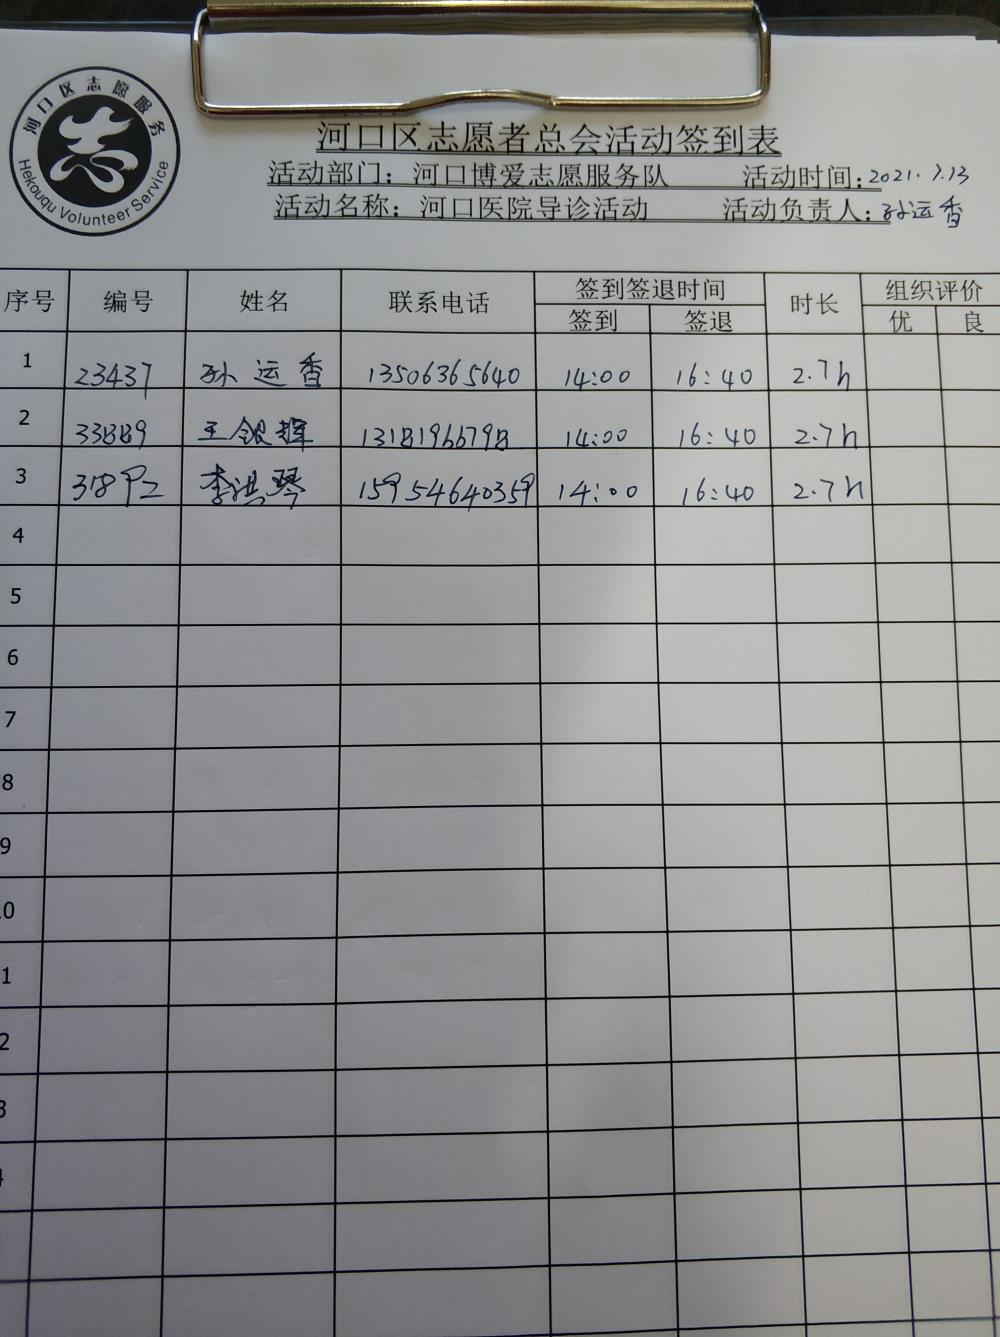 河口区志愿服务
Hekouqu Volunteer Service
河口区志愿者总会活动签到表
活动部门：河口博爱志愿服务队 活动时间：2021.7.13
活动名称：河口医院导诊活动 活动负责人：孙运香
序号 编号 姓名 联系电话 签到签退时间 时长 组织评价
签到 签退 优 良
1 23437 孙运香 13506365640 14:00 16:40 2.7h
2 33889 王银辉 13181966798 14:00 16:40 2.7h
3 李淇琴 15954640359 14:00 16:40 2.7h
4
5
6
7
8
9
0
1
2
3